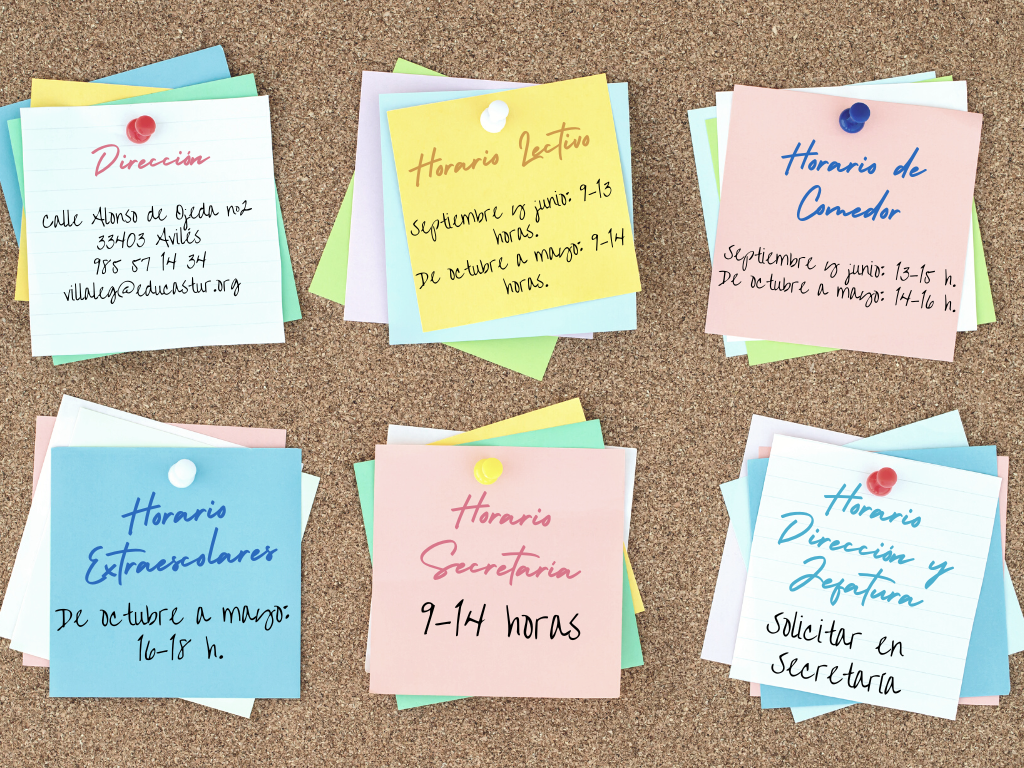 Dirección
calle Alonso de Ojeda nº2
33403 Avilés
985 57 14 34
villaleg@educastur.org
Horario Lectivo
Septiembre y junio: 9-13
horas.
De octubre a mayo: 9-14
horas.
Horario de
Comedor
Septiembre y junio: 13-15 h.
De octubre a mayo: 14-16 h.
Horario
Extraescolares
De octubre a mayo:
16-18 h.
Horario
Secretaría
9-14 horas
Horario
Dirección y
Jefatura
Solicitar en
secretaría